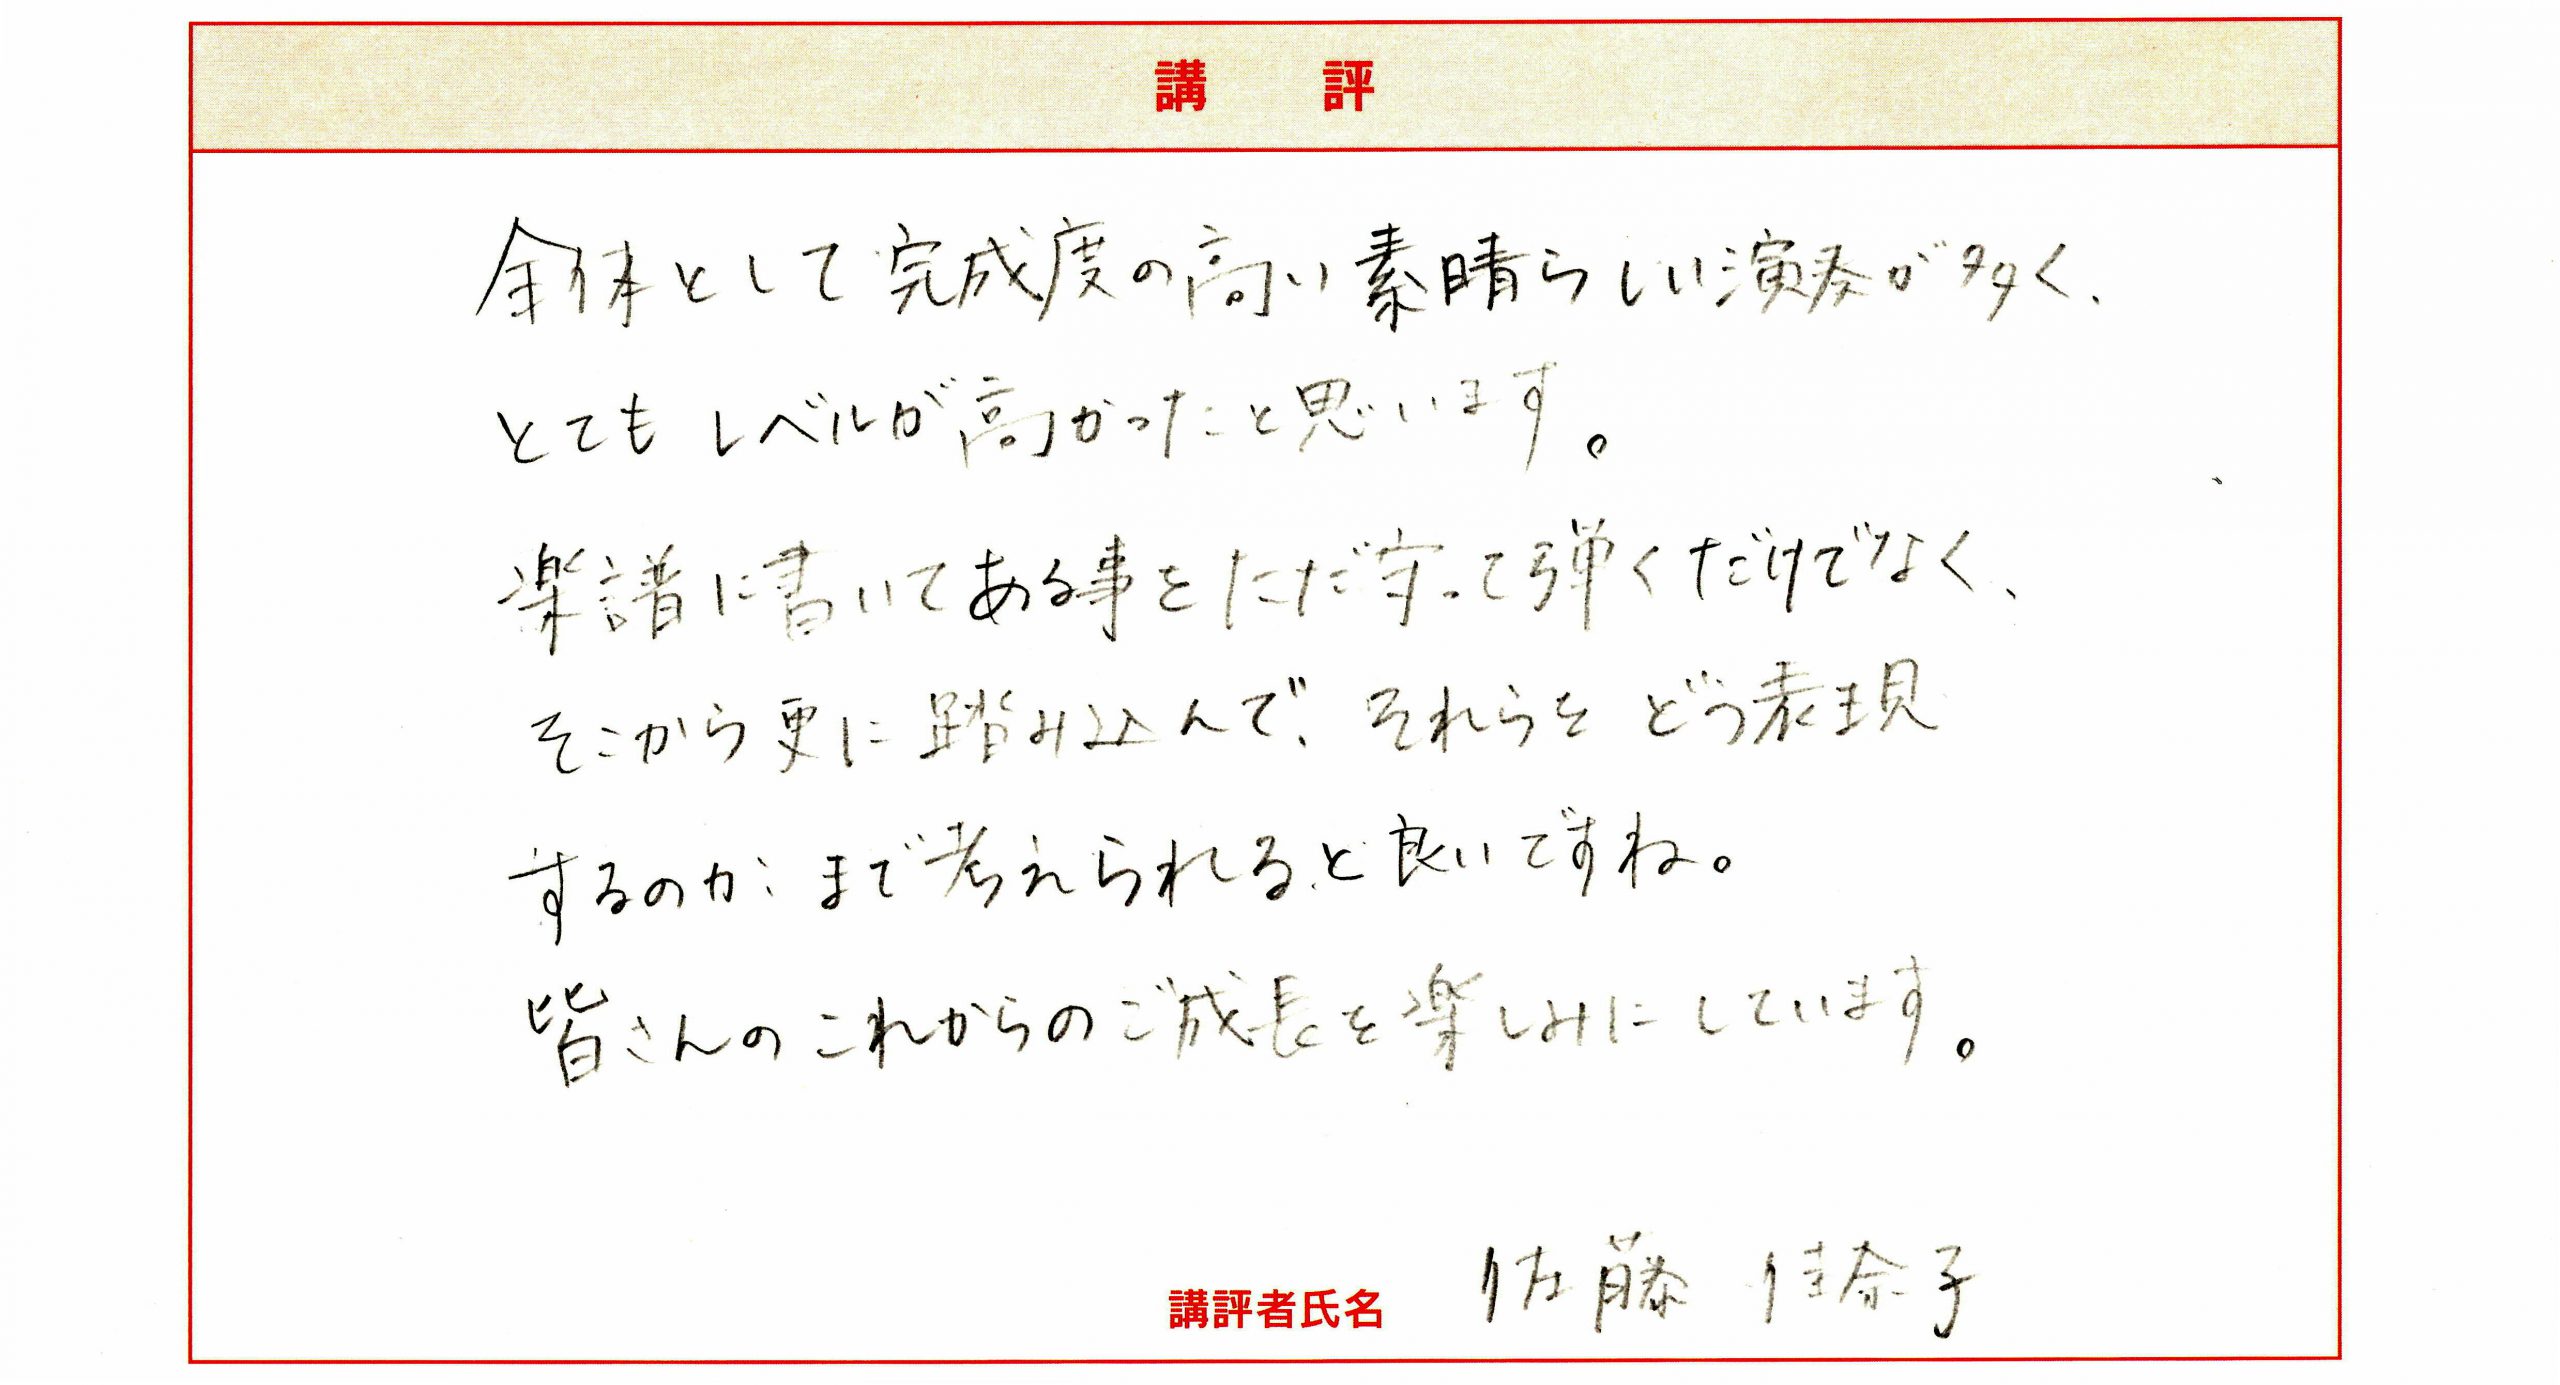 講評
全体として完成度の高い素晴らしい演奏が多く、
とてもレベルが高かったと思います。
楽譜に書いてある事をただ守って弾くだけでなく、
そこから更に踏み込んで、それらをどう表現
するのかまで考えられると良いですね。
皆さんのこれからのご成長を楽しみにしています。
講評者氏名 佐藤 佳奈子